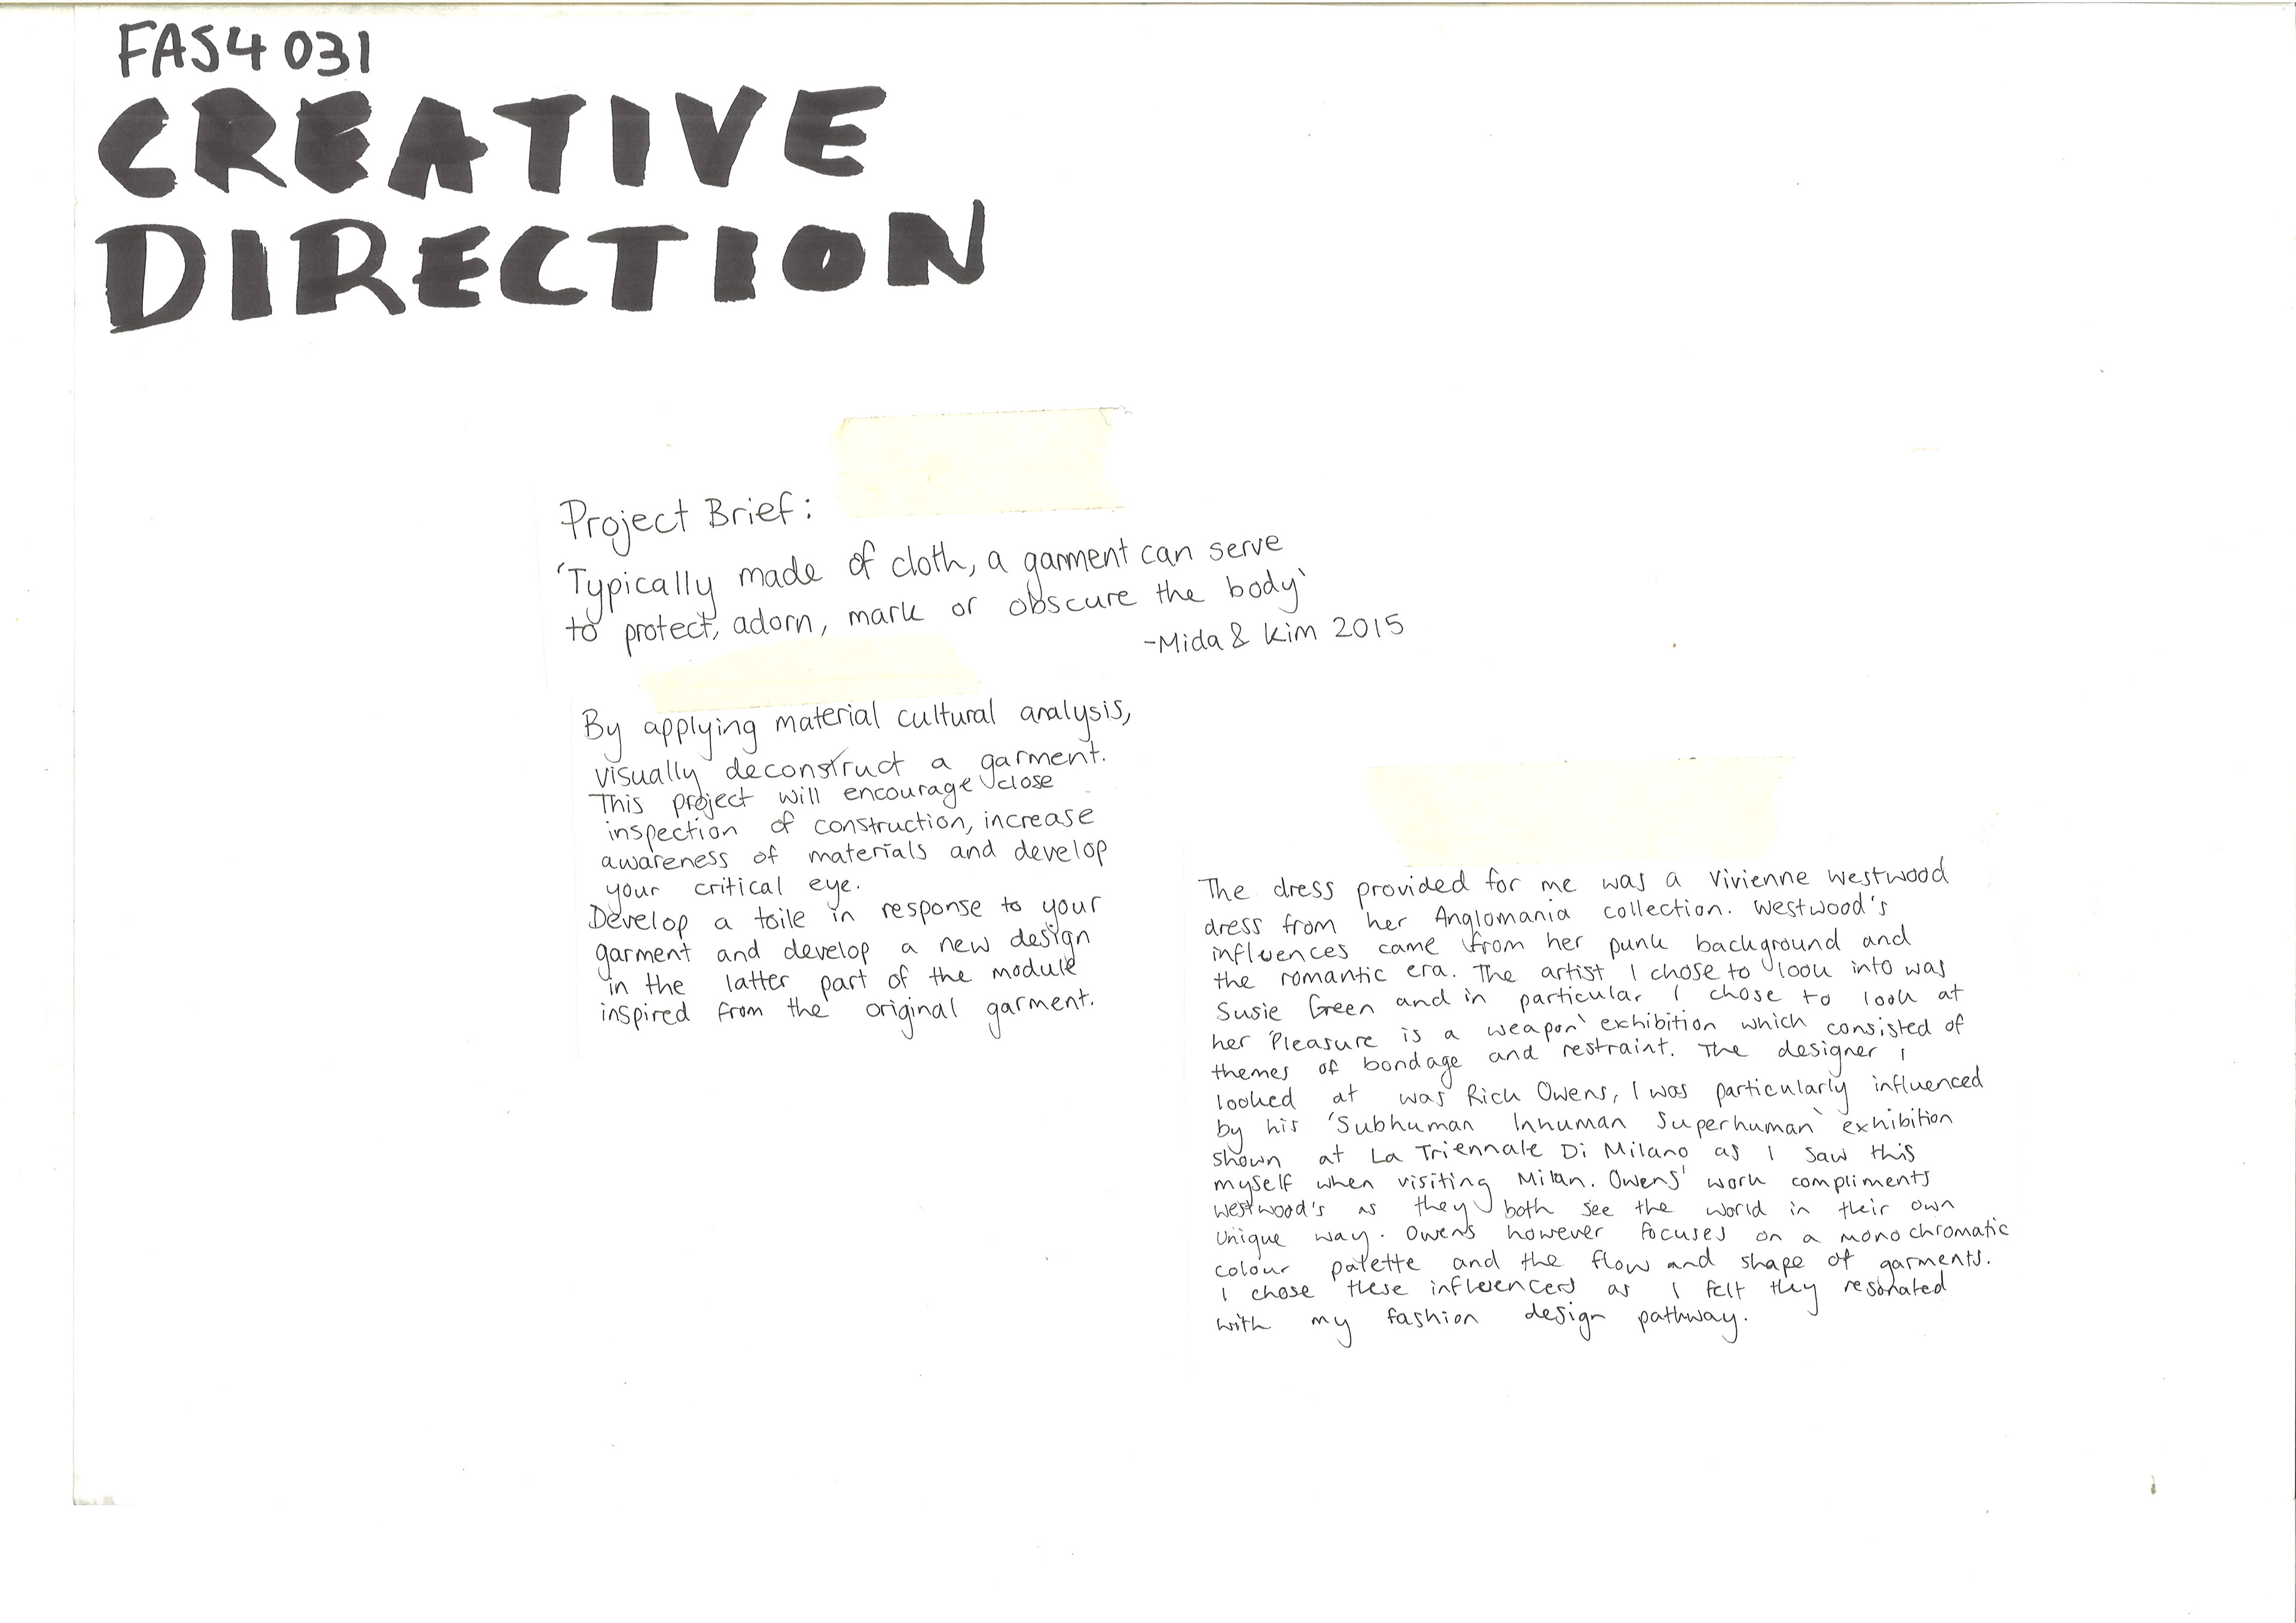 FAS4 031
CREATIVE
DIRECTION
Project Brief:
'Typically made of cloth, a garment can serve
to protect, adorn, mark or obscure the body'
-Mida & Kim 2015
By applying material cultural analysis,
visually deconstruct a garment.
This project will encourage close
inspection of construction, increase
awareness of materials and develop
your critical eye.
Develop a toile in response to your
garment and develop a new design
in the latter part of the module
inspired from the original garment.
The dress provided for me was a Vivienne Westwood
dress from her Anglomania collection. Westwood's
influences came from her punk background and
the romantic era. The artist I chose to look into was
Susie Green and in particular I chose to look at
her 'Pleasure is a weapon' exhibition which consisted of
themes of bondage and restraint. The designer I
looked at was Rick Owens, I was particularly influenced
by his 'Subhuman Inhuman Superhuman' exhibition
shown at La Triennale Di Milano as I saw this
myself when visiting Milan. Owens' work compliments
Westwood's as they both see the world in their own
unique way. Owens however focuses on a monochromatic
colour palette and the flow and shape of garments.
I chose these influencers as I felt they resonated
with my fashion design pathway.